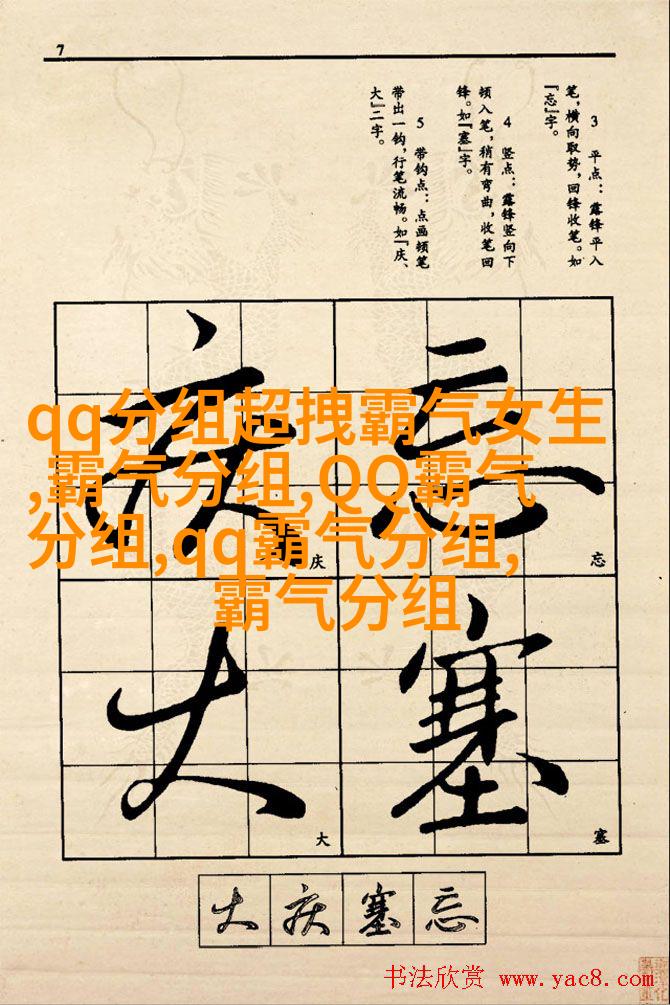 7
3 平点：露锋平入
笔，横向取势，回锋收笔。如
『忘』字。
4 竖点：露锋竖向下
顿入笔，稍有弯曲，收笔回
锋。如『塞』字。
5 带钩点：点画顿笔
带出一钩，行笔流畅。如『庆、
大』二字。
忘
忘
塞
塞
庆
庆
大
大
qq分组超拽霸气女生
,霸气分组,QQ霸气
分组,qq霸气分组,
霸气分组
大 庆 塞 忘
书法欣赏 www.yac8.com